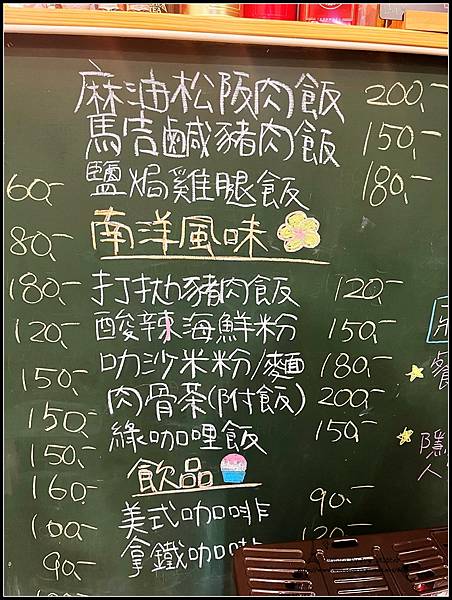 麻油松阪肉飯 200,-
馬告鹹豬肉飯 150,-
鹽焗雞腿飯 180,-
60,-
南洋風味
80,-
180,- 打拋豬肉飯 120,-
120,- 酸辣海鮮粉 150,-
叻沙米粉/麵 180,-
150,-
肉骨茶(附飯) 200,-
150,-
綠咖哩飯 150,-
150,-
飲品
160,-
美式咖啡 90,-
100,-
拿鐵咖啡 120,-
90,-
隱
人